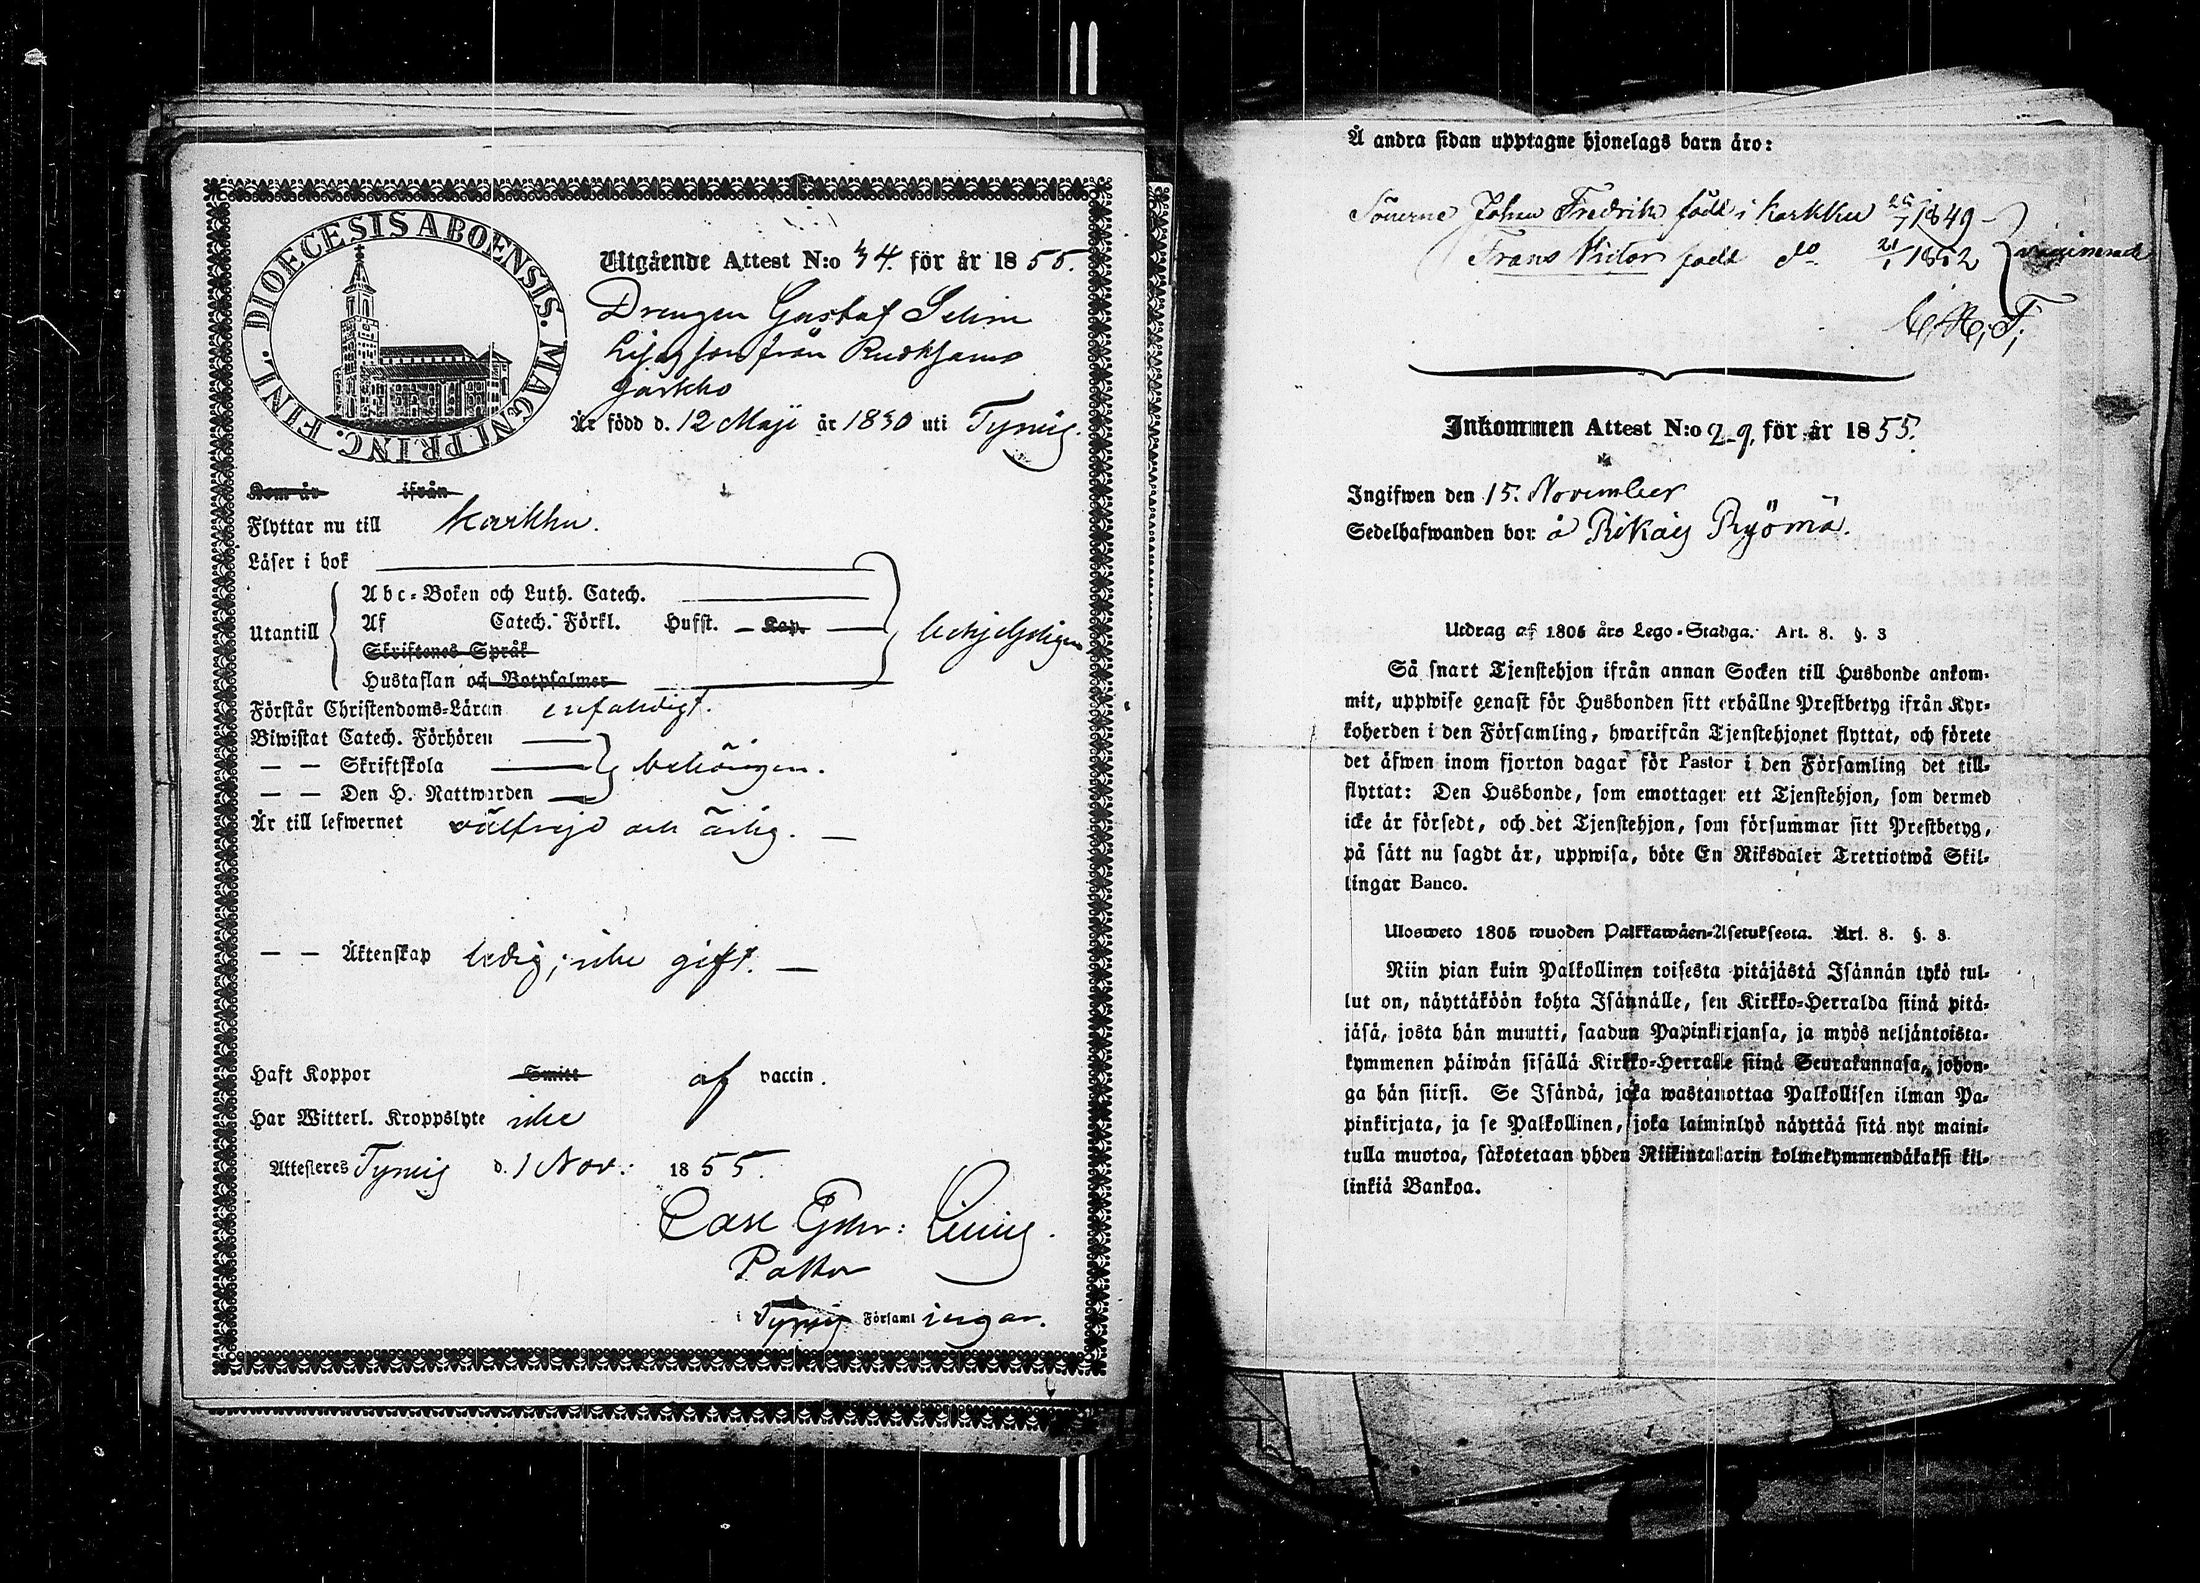 DIOECESIS ABOENSIS. MAGNI PRINC. FINL.
Utgående Attest N:o 34. för år 1855.
Drengen Gustaf Selim
från
Är född d. 12 Maji år 1830 uti Tyrvis.
Kom år ifrån
Flyttar nu till Karkku.
Läser i bok
Abc-Boken och Luth. Catech.
Utantill Af Catech. Förkl. Hufst. Kap.
Skriftenes Språk
Hustaflan och Botpsalmer
Förstår Christendoms-Läran enfaldigt.
Biwistat Catech. Förhören
— — Skriftskola behörigen.
— — Den H. Nattwarden
Är till lefwernet välfrejd och ärlig. —
— — Äktenskap ledig; icke gift. —
Haft Koppor Smitt af vaccin.
Har Witterl. Kroppslyte icke
Attesteres Tyrvis d. 1 Nov: 1855.
Carl
Pastor
i Tyrvis Församlingar.
Å andra sidan upptagne hjonelags barn äro:
Sönerne Johan Fredrik född i Karkku 25/7 1849
Frans Victor född do 21/1 1852 vaccinerade
Inkommen Attest N:o 29. för år 1855.
Ingifwen den 15. November
Sedelhafwanden bor å Rikais Ryömä.
Utdrag af 1805 års Lego-Stadga. Art. 8. §. 3
Så snart Tjenstehjon ifrån annan Socken till Husbonde ankom-
mit, uppwise genast för Husbonden sitt erhållne Prestbetyg ifrån Kyr-
koherden i den Församling, hwarifrån Tjenstehjonet flyttat, och förete
det äfwen inom fjorton dagar för Pastor i den Församling det till-
flyttat: Den Husbonde, som emottager ett Tjenstehjon, som dermed
icke är försedt, och det Tjenstehjon, som försummar sitt Prestbetyg,
på sätt nu sagdt är, uppwisa, böte En Riksdaler Trettiotwå Skil-
lingar Banco.
Ulosweto 1805 wuoden Palkkawäen-Asetuksesta. Art. 8. §. 3.
Niin pian kuin Palkollinen toisesta pitäjästä Isännän tykö tul-
lut on, näyttäköön kohta Isännälle, sen Kirkko-Herralda siinä pitä-
jäsä, josta hän muutti, saadun Papinkirjansa, ja myös neljäntoista-
kymmenen päiwän sisällä Kirkko-Herralle siinä Seurakunnasa, johon-
ga hän siirsi. Se Isändä, joka wastanottaa Palkollisen ilman Pa-
pinkirjata, ja se Palkollinen, joka laiminlyö näyttää sitä nyt maini-
tulla muotoa, säkotetaan yhden Riikintalarin kolmekymmendäkaksi kil-
linkiä Bankoa.